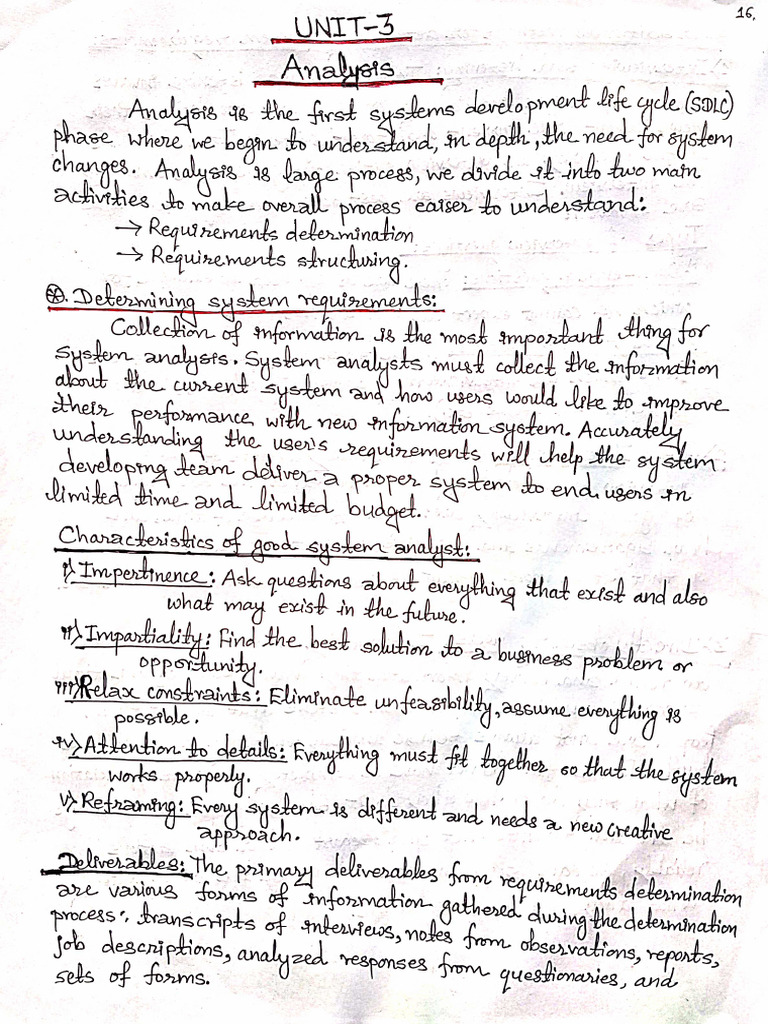 16.
UNIT-3
Analysis
Analysis is the first systems development life cycle (SDLC)
phase where we begin to understand, in depth, the need for system
changes. Analysis is large process, we divide it into two main
activities to make overall process eaiser to understand:
→ Requirements determination
→ Requirements structuring.
⊛. Determining system requirements:
Collection of information is the most important thing for
system analysis. System analysts must collect the information
about the current system and how users would like to improve
their performance with new information system. Accurately
understanding the user's requirements will help the system
developing team deliver a proper system to end users in
limited time and limited budget.
Characteristics of good system analyst:
i) Impertinence: Ask questions about everything that exist and also
what may exist in the future.
ii) Impartiality: Find the best solution to a business problem or
opportunity.
iii) Relax constraints: Eliminate unfeasibility, assume everything is
possible.
iv) Attention to details: Everything must fit together so that the system
works properly.
v) Reframing: Every system is different and needs a new creative
approach.
Deliverables: The primary deliverables from requirements determination
are various forms of information gathered during the determination
process: transcripts of interviews, notes from observations, reports,
job descriptions, analyzed responses from questionaries, and
sets of forms.